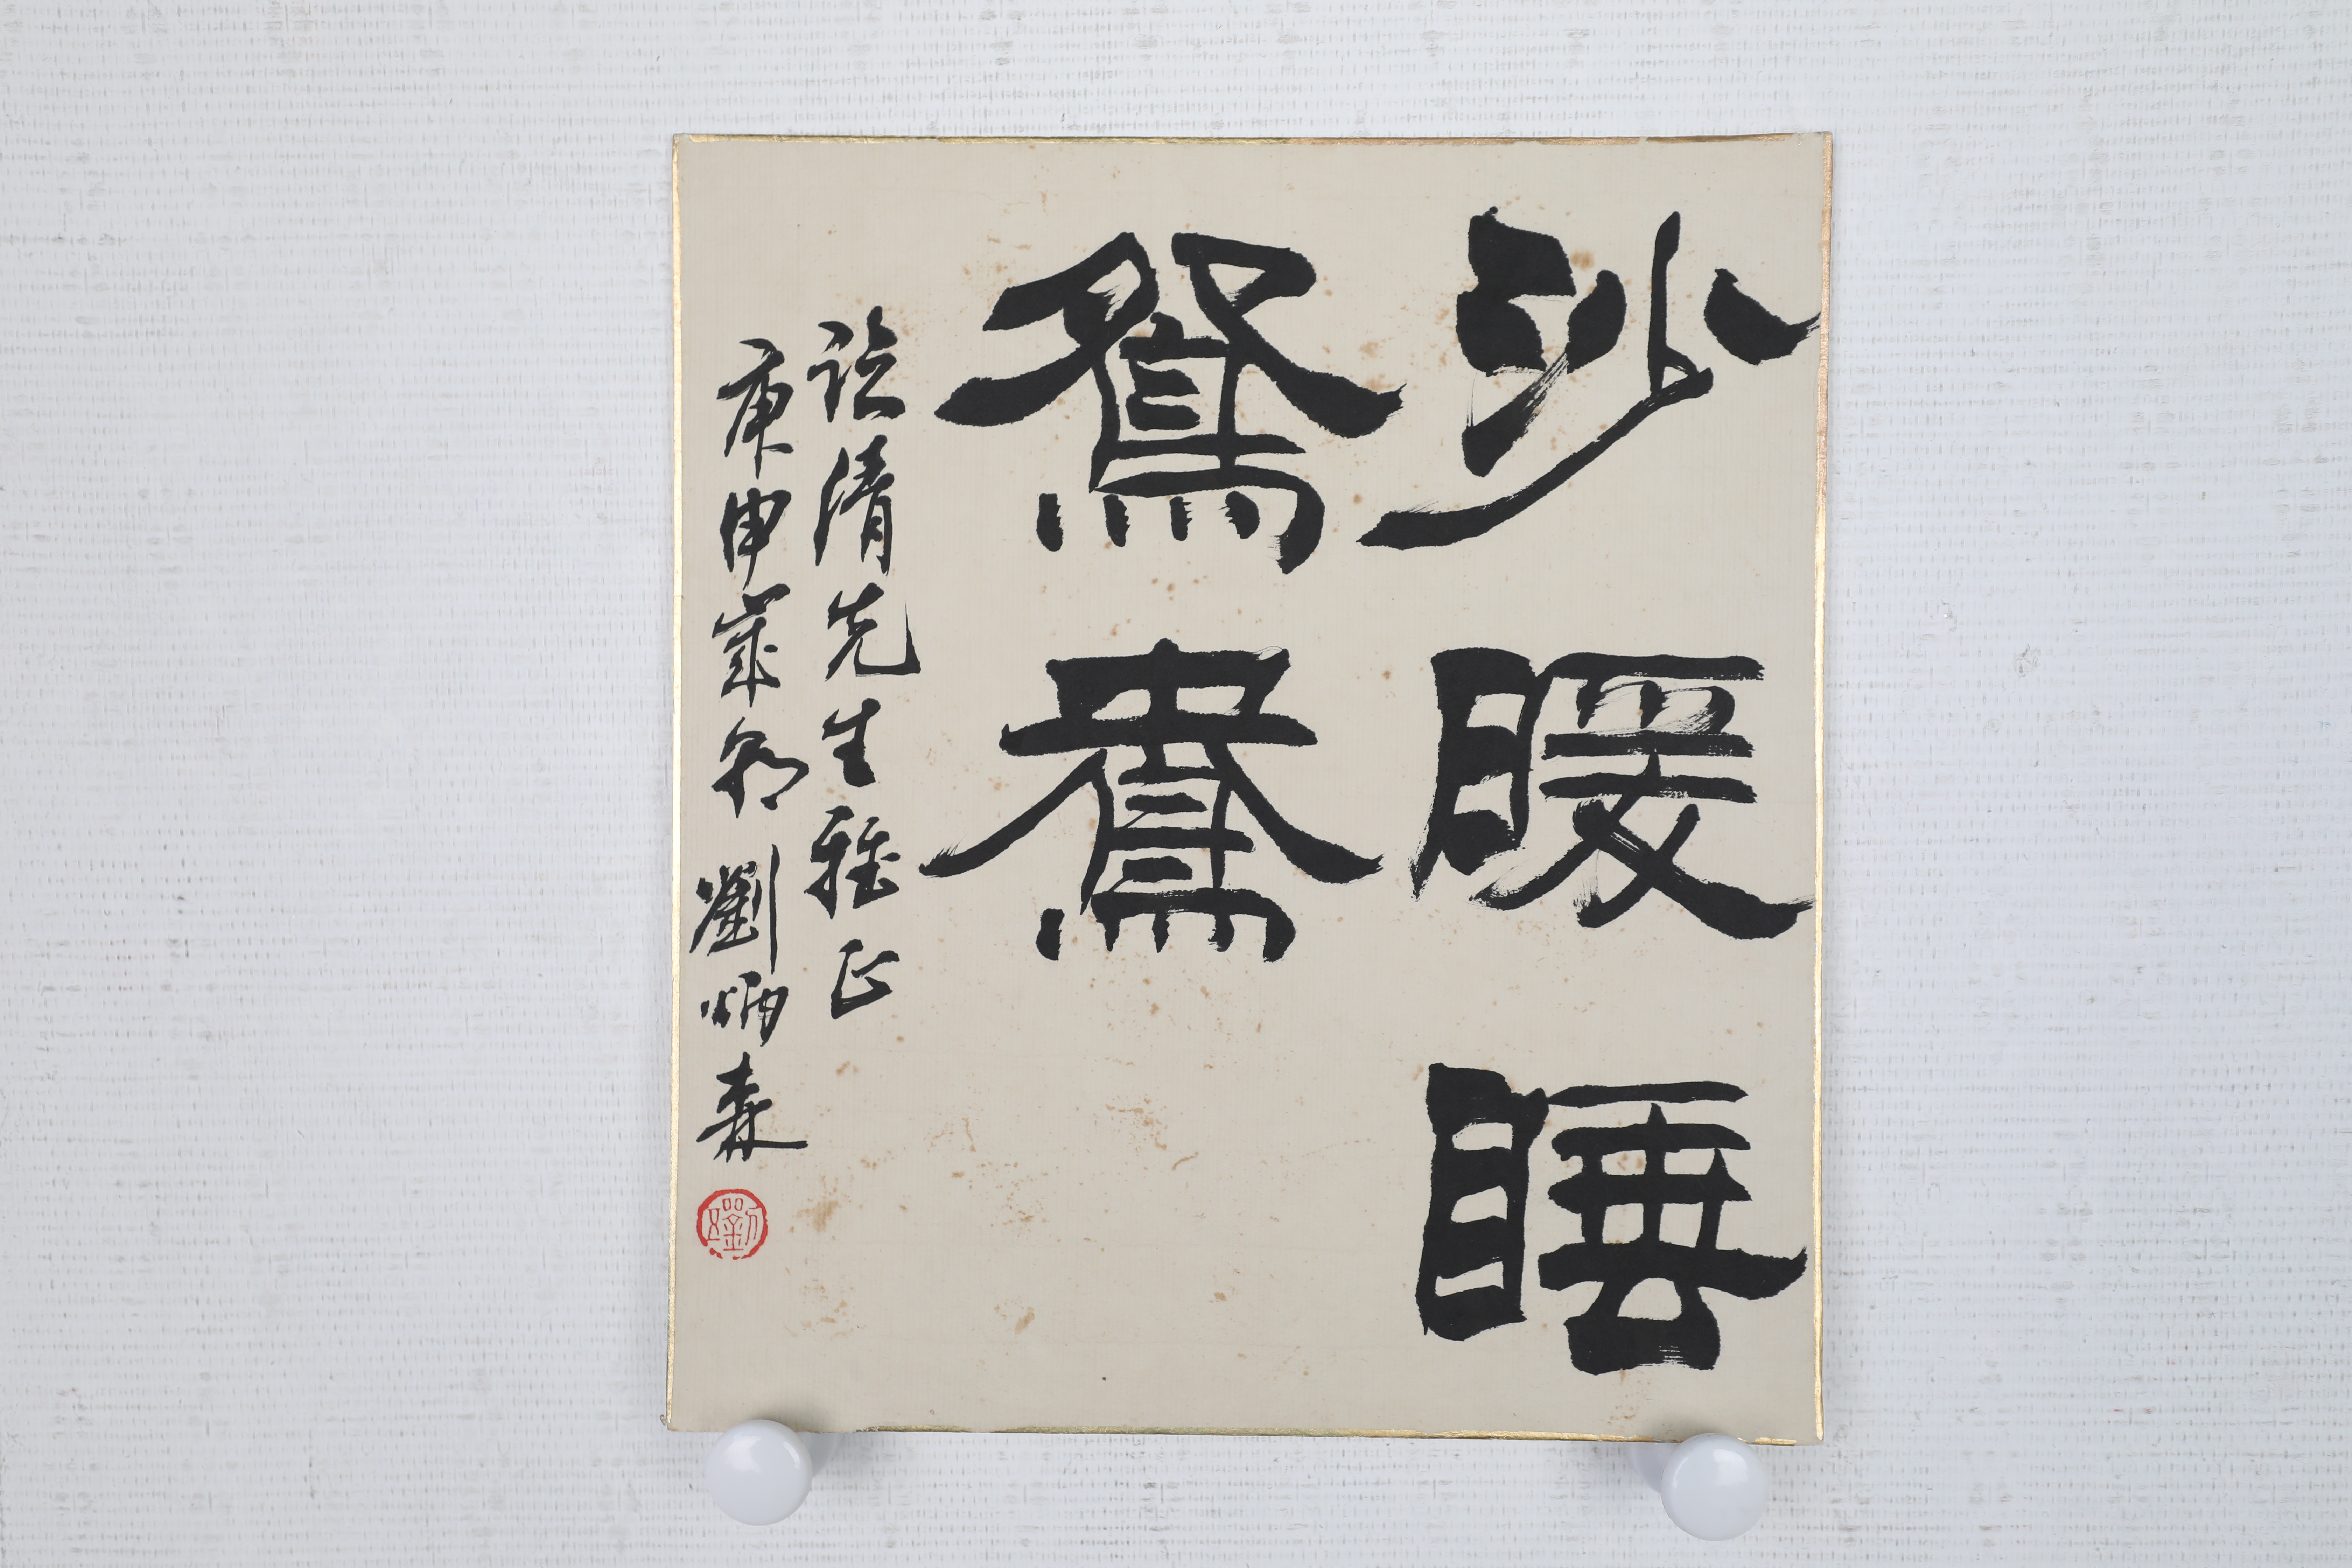 沙暖睡
鴛鴦
詮清先生雅正
庚申歲初劉炳森